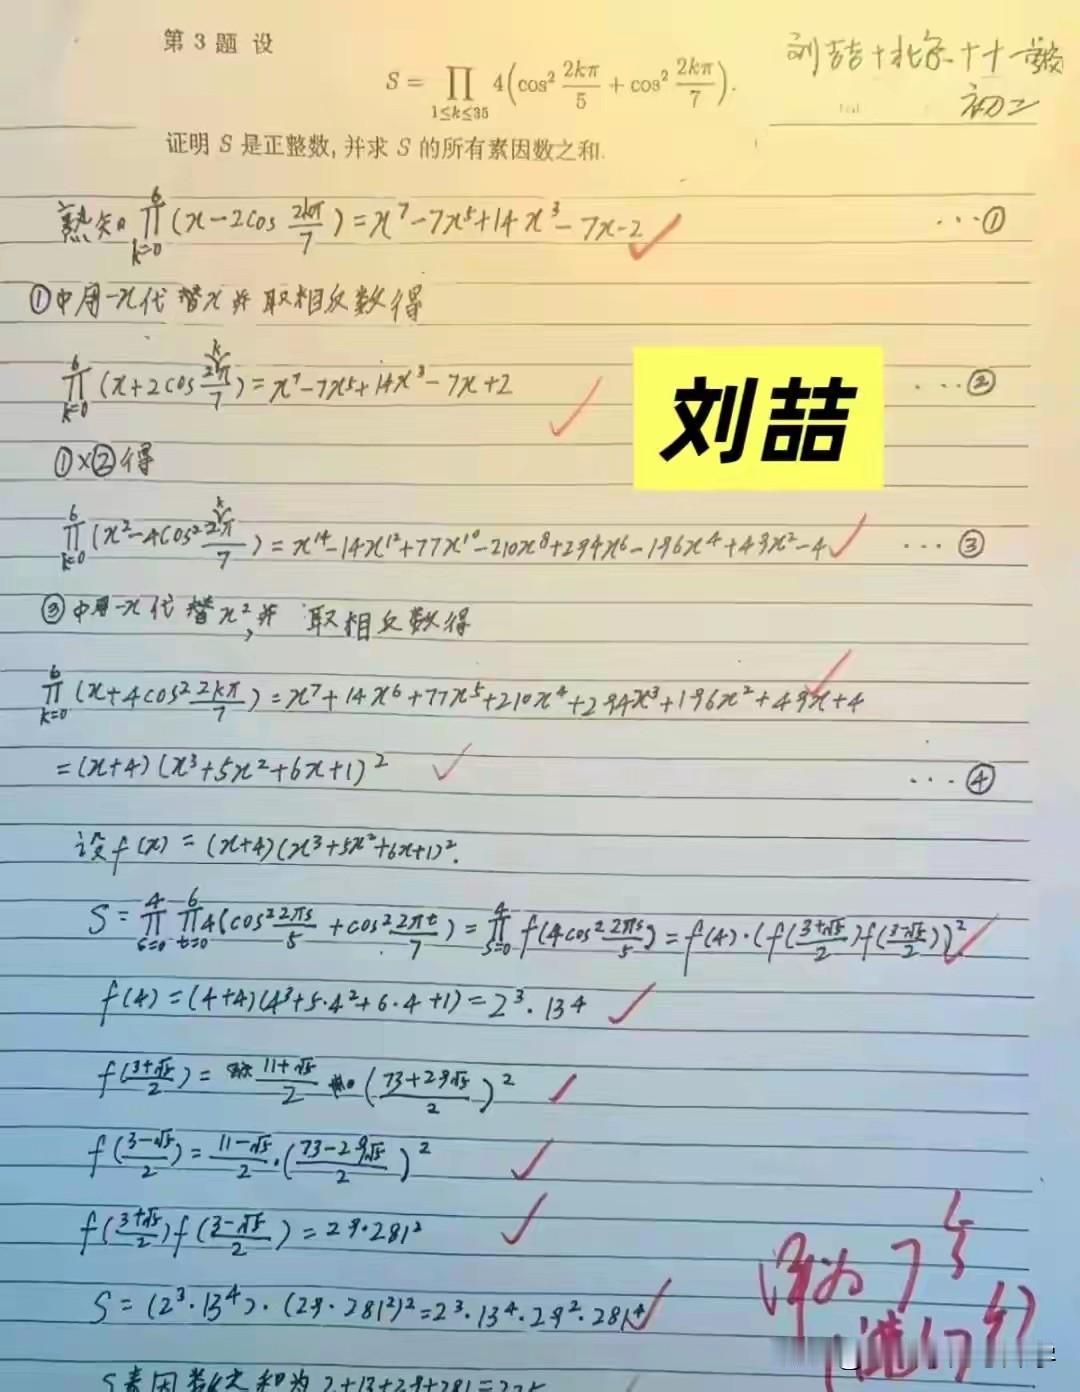 第 3 题 设
S = ∏_{1≤k≤35} 4(cos² 2kπ/5 + cos² 2kπ/7).
证明 S 是正整数, 并求 S 的所有素因数之和.
刘喆+北京十十一学校
初二
熟知 ∏_{k=0}^{6} (x-2cos 2kπ/7) = x⁷-7x⁵+14x³-7x-2 …①
①中用-x代替x并取相反数得
∏_{k=0}^{6} (x+2cos 2kπ/7) = x⁷-7x⁵+14x³-7x+2 …②
刘喆
①×②得
∏_{k=0}^{6} (x²-4cos² 2kπ/7) = x¹⁴-14x¹²+77x¹⁰-210x⁸+294x⁶-196x⁴+49x²-4 …③
③中用-x代替x²,并取相反数得
∏_{k=0}^{6} (x+4cos² 2kπ/7) = x⁷+14x⁶+77x⁵+210x⁴+294x³+196x²+49x+4
=(x+4)(x³+5x²+6x+1)² …④
设f(x) = (x+4)(x³+5x²+6x+1)².
S = ∏_{s=0}^{4} ∏_{t=0}^{6} 4(cos² 2πs/5 + cos² 2πt/7) = ∏_{s=0}^{4} f(4cos² 2πs/5) = f(4)·(f((3+√5)/2)f((3-√5)/2))²
f(4) = (4+4)(4³+5·4²+6·4+1) = 2³·13⁴
f((3+√5)/2) = (11+√5)/2 · ((73+29√5)/2)²
f((3-√5)/2) = (11-√5)/2 · ((73-29√5)/2)²
f((3+√5)/2)f((3-√5)/2) = 29·281²
S = (2³·13⁴)·(29·281²)² = 2³·13⁴·29²·281⁴
S素因数之和为2+13+29+281=325
评为7分